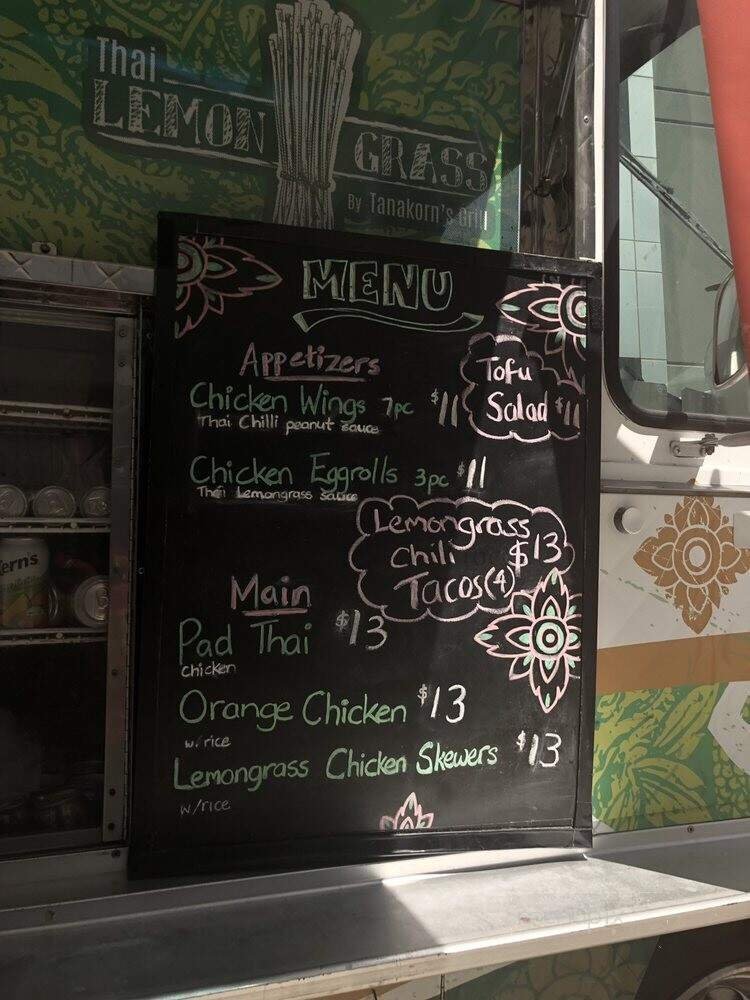 Thai
LEMON GRASS
By Tanakorn's Grill
MENU
Appetizers
Chicken Wings 7pc $11
Thai Chilli peanut sauce
Tofu
Salad $11
Chicken Eggrolls 3pc $11
Thai Lemongrass Sauce
Lemongrass
Chili $13
Tacos (4)
Main
Pad Thai $13
chicken
Orange Chicken $13
w/rice
Lemongrass Chicken Skewers $13
w/rice
ern's